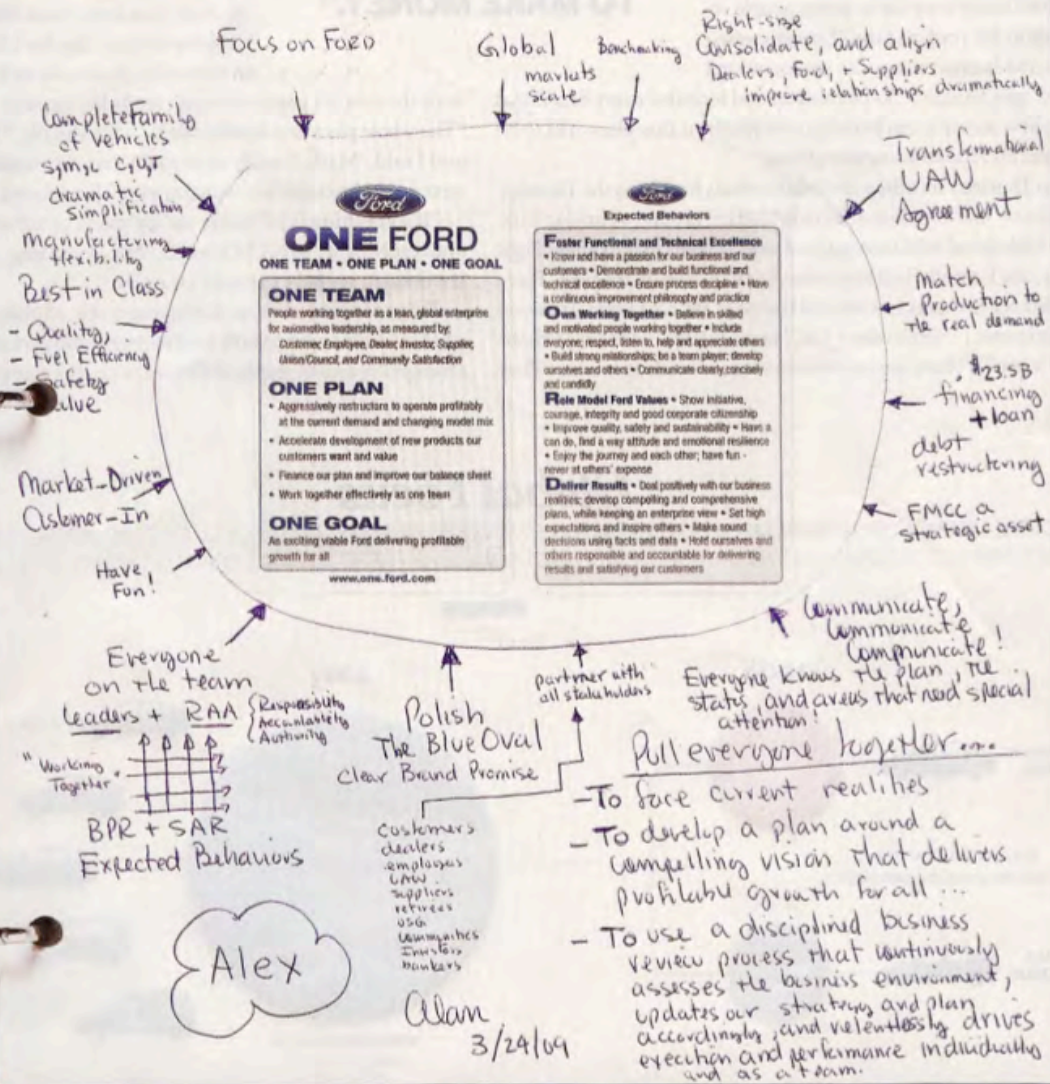 TO MAKE MONEY.
Focus on FORD
Global
markets
scale
Benchmarking
Right-size
Consolidate, and align
Dealers, Ford, + Suppliers
improve relationships dramatically
Complete Family
of vehicles
s,m,l c,u,T
dramatic
simplification
manufacturing
flexibility
Best in Class
- Quality,
- Fuel Efficiency
- Safety
Value
Market-Driven
Customer-In
Have
Fun!
Transformational
UAW
Agreement
Match
Production to
the real demand
. $23.5B
financing
+ loan
debt
restructuring
FMCC a
strategic asset
Ford
ONE FORD
ONE TEAM • ONE PLAN • ONE GOAL
ONE TEAM
People working together as a lean, global enterprise
for automotive leadership, as measured by:
Customer, Employee, Dealer, Investor, Supplier,
Union/Council, and Community Satisfaction
ONE PLAN
• Aggressively restructure to operate profitably
at the current demand and changing model mix
• Accelerate development of new products our
customers want and value
• Finance our plan and improve our balance sheet
• Work together effectively as one team
ONE GOAL
An exciting viable Ford delivering profitable
growth for all
www.one.ford.com
Ford
Expected Behaviors
Foster Functional and Technical Excellence
• Know and have a passion for our business and our
customers • Demonstrate and build functional and
technical excellence • Ensure process discipline • Have
a continuous improvement philosophy and practice
Own Working Together • Believe in skilled
and motivated people working together • Include
everyone; respect, listen to, help and appreciate others
• Build strong relationships; be a team player; develop
ourselves and others • Communicate clearly, concisely
and candidly
Role Model Ford Values • Show initiative,
courage, integrity and good corporate citizenship
• Improve quality, safety and sustainability • Have a
can do, find a way attitude and emotional resilience
• Enjoy the journey and each other; have fun -
never at others' expense
Deliver Results • Deal positively with our business
realities; develop compelling and comprehensive
plans, while keeping an enterprise view • Set high
expectations and inspire others • Make sound
decisions using facts and data • Hold ourselves and
others responsible and accountable for delivering
results and satisfying our customers
Everyone
on the team
Leaders + RAA
Responsibility
Accountability
Authority
"Working
Together
BPR + SAR
Expected Behaviors
Polish
The Blue Oval
clear Brand Promise
partner with
all stakeholders
customers
dealers
employees
UAW
suppliers
retirees
USG
communities
Investors
bankers
Communicate,
Communicate
Communicate!
Everyone knows the plan, the
status, and areas that need special
attention!
Pull everyone together....
- To face current realities
- To develop a plan around a
compelling vision that delivers
profitable growth for all ...
- To use a disciplined business
review process that continuously
assesses the business environment,
updates our strategy and plan
accordingly, and relentlessly drives
execution and performance individually
and as a team.
Alex
Alan
3/24/09